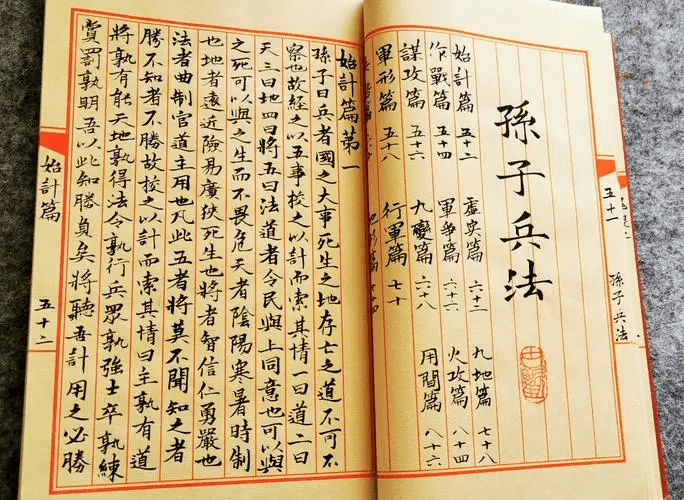 孫子兵法
五十一
孫子兵法
始計篇 五十二 虛實篇 六十二 九地篇 七十八
作戰篇 五十四 軍爭篇 六十六 火攻篇 八十四
謀攻篇 五十六 九變篇 六十八 用間篇 八十六
軍形篇 五十八 行軍篇 七十
地形篇 七十四
始計篇第一
孫子曰兵者國之大事死生之地存亡之道不可不
察也故經之以五事校之以計而索其情一曰道二曰
天三曰地四曰將五曰法道者令民與上同意也可以與
之死可以與之生而不畏危天者陰陽寒暑時制
也地者遠近險易廣狹死生也將者智信仁勇嚴也
法者曲制官道主用也凡此五者將莫不聞知之者
勝不知者不勝故校之以計而索其情曰主孰有道
將孰有能天地孰得法令孰行兵眾孰強士卒孰練
賞罰孰明吾以此知勝負矣將聽吾計用之必勝
始計篇
五十二